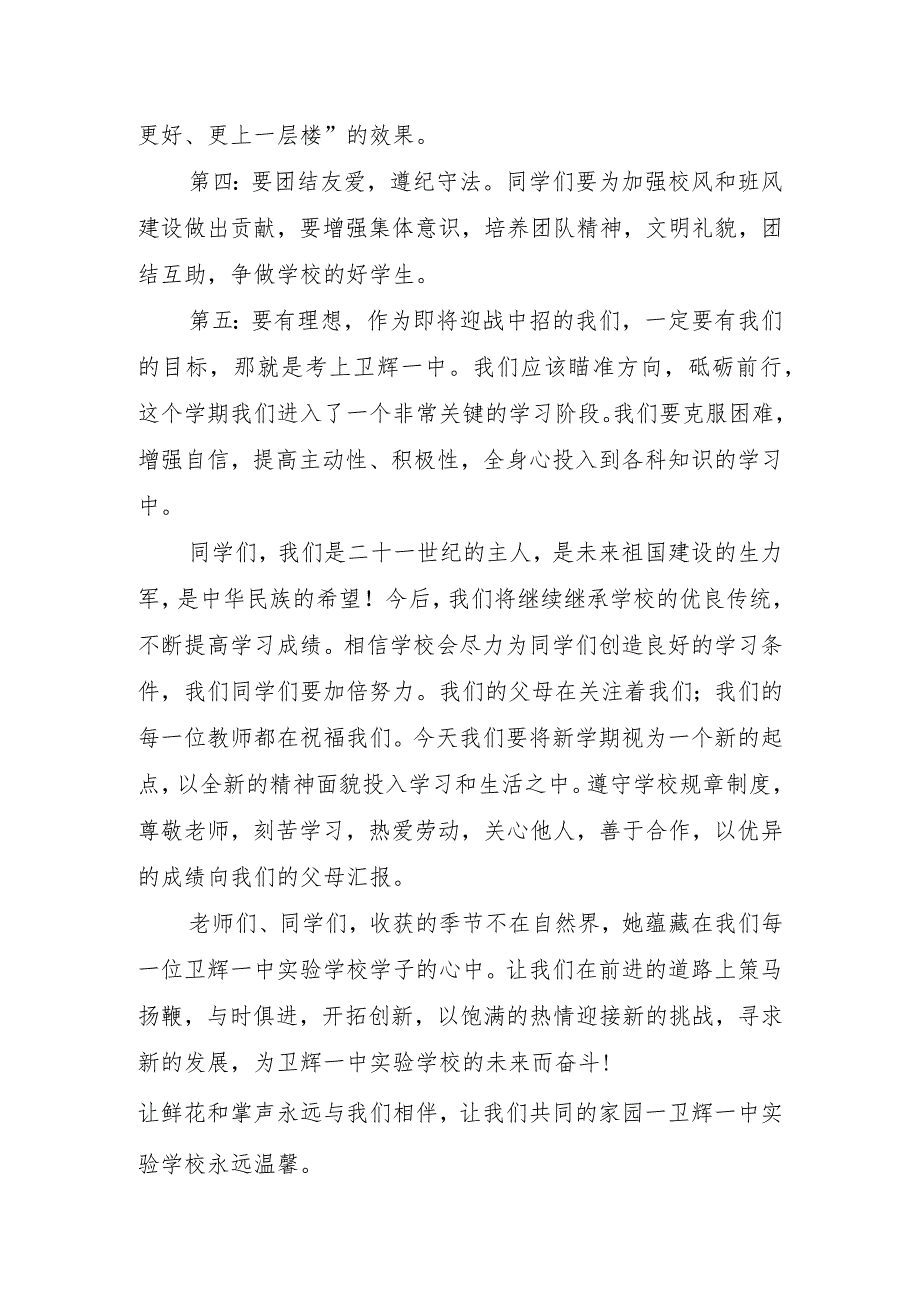 更好、更上一层楼”的效果。
第四：要团结友爱，遵纪守法。同学们要为加强校风和班风
建设做出贡献，要增强集体意识，培养团队精神，文明礼貌，团
结互助，争做学校的好学生。
第五：要有理想，作为即将迎战中招的我们，一定要有我们
的目标，那就是考上卫辉一中。我们应该瞄准方向，砥砺前行，
这个学期我们进入了一个非常关键的学习阶段。我们要克服困难，
增强自信，提高主动性、积极性，全身心投入到各科知识的学习
中。
同学们，我们是二十一世纪的主人，是未来祖国建设的生力
军，是中华民族的希望！今后，我们将继续继承学校的优良传统，
不断提高学习成绩。相信学校会尽力为同学们创造良好的学习条
件，我们同学们要加倍努力。我们的父母在关注着我们；我们的
每一位教师都在祝福我们。今天我们要将新学期视为一个新的起
点，以全新的精神面貌投入学习和生活之中。遵守学校规章制度，
尊敬老师，刻苦学习，热爱劳动，关心他人，善于合作，以优异
的成绩向我们的父母汇报。
老师们、同学们，收获的季节不在自然界，她蕴藏在我们每
一位卫辉一中实验学校学子的心中。让我们在前进的道路上策马
扬鞭，与时俱进，开拓创新，以饱满的热情迎接新的挑战，寻求
新的发展，为卫辉一中实验学校的未来而奋斗!
让鲜花和掌声永远与我们相伴，让我们共同的家园一卫辉一中实
验学校永远温馨。